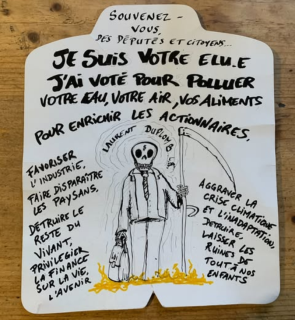 SOUVENEZ -
VOUS,
DES DÉPUTÉS ET CITOYENS...
JE SUIS VOTRE ELU.E
J'AI VOTÉ POUR POLLUER
VOTRE EAU, VOTRE AIR, VOS ALIMENTS
POUR ENRICHIR LES ACTIONNAIRES,
LAURENT DUPLOMB
FAVORISER
L'INDUSTRIE,
FAIRE DISPARAÎTRE
LES PAYSANS,
DETRUIRE LE
RESTE DU
VIVANT,
PRIVILEGIER
LA FINANCE
SUR LA VIE,
L'AVENIR
AGGRAVER LA
CRISE CLIMATIQUE
ET L'INADAPTATION,
DETRUIRE
LAISSER LES
RUINES DE
TOUT À NOS
ENFANTS